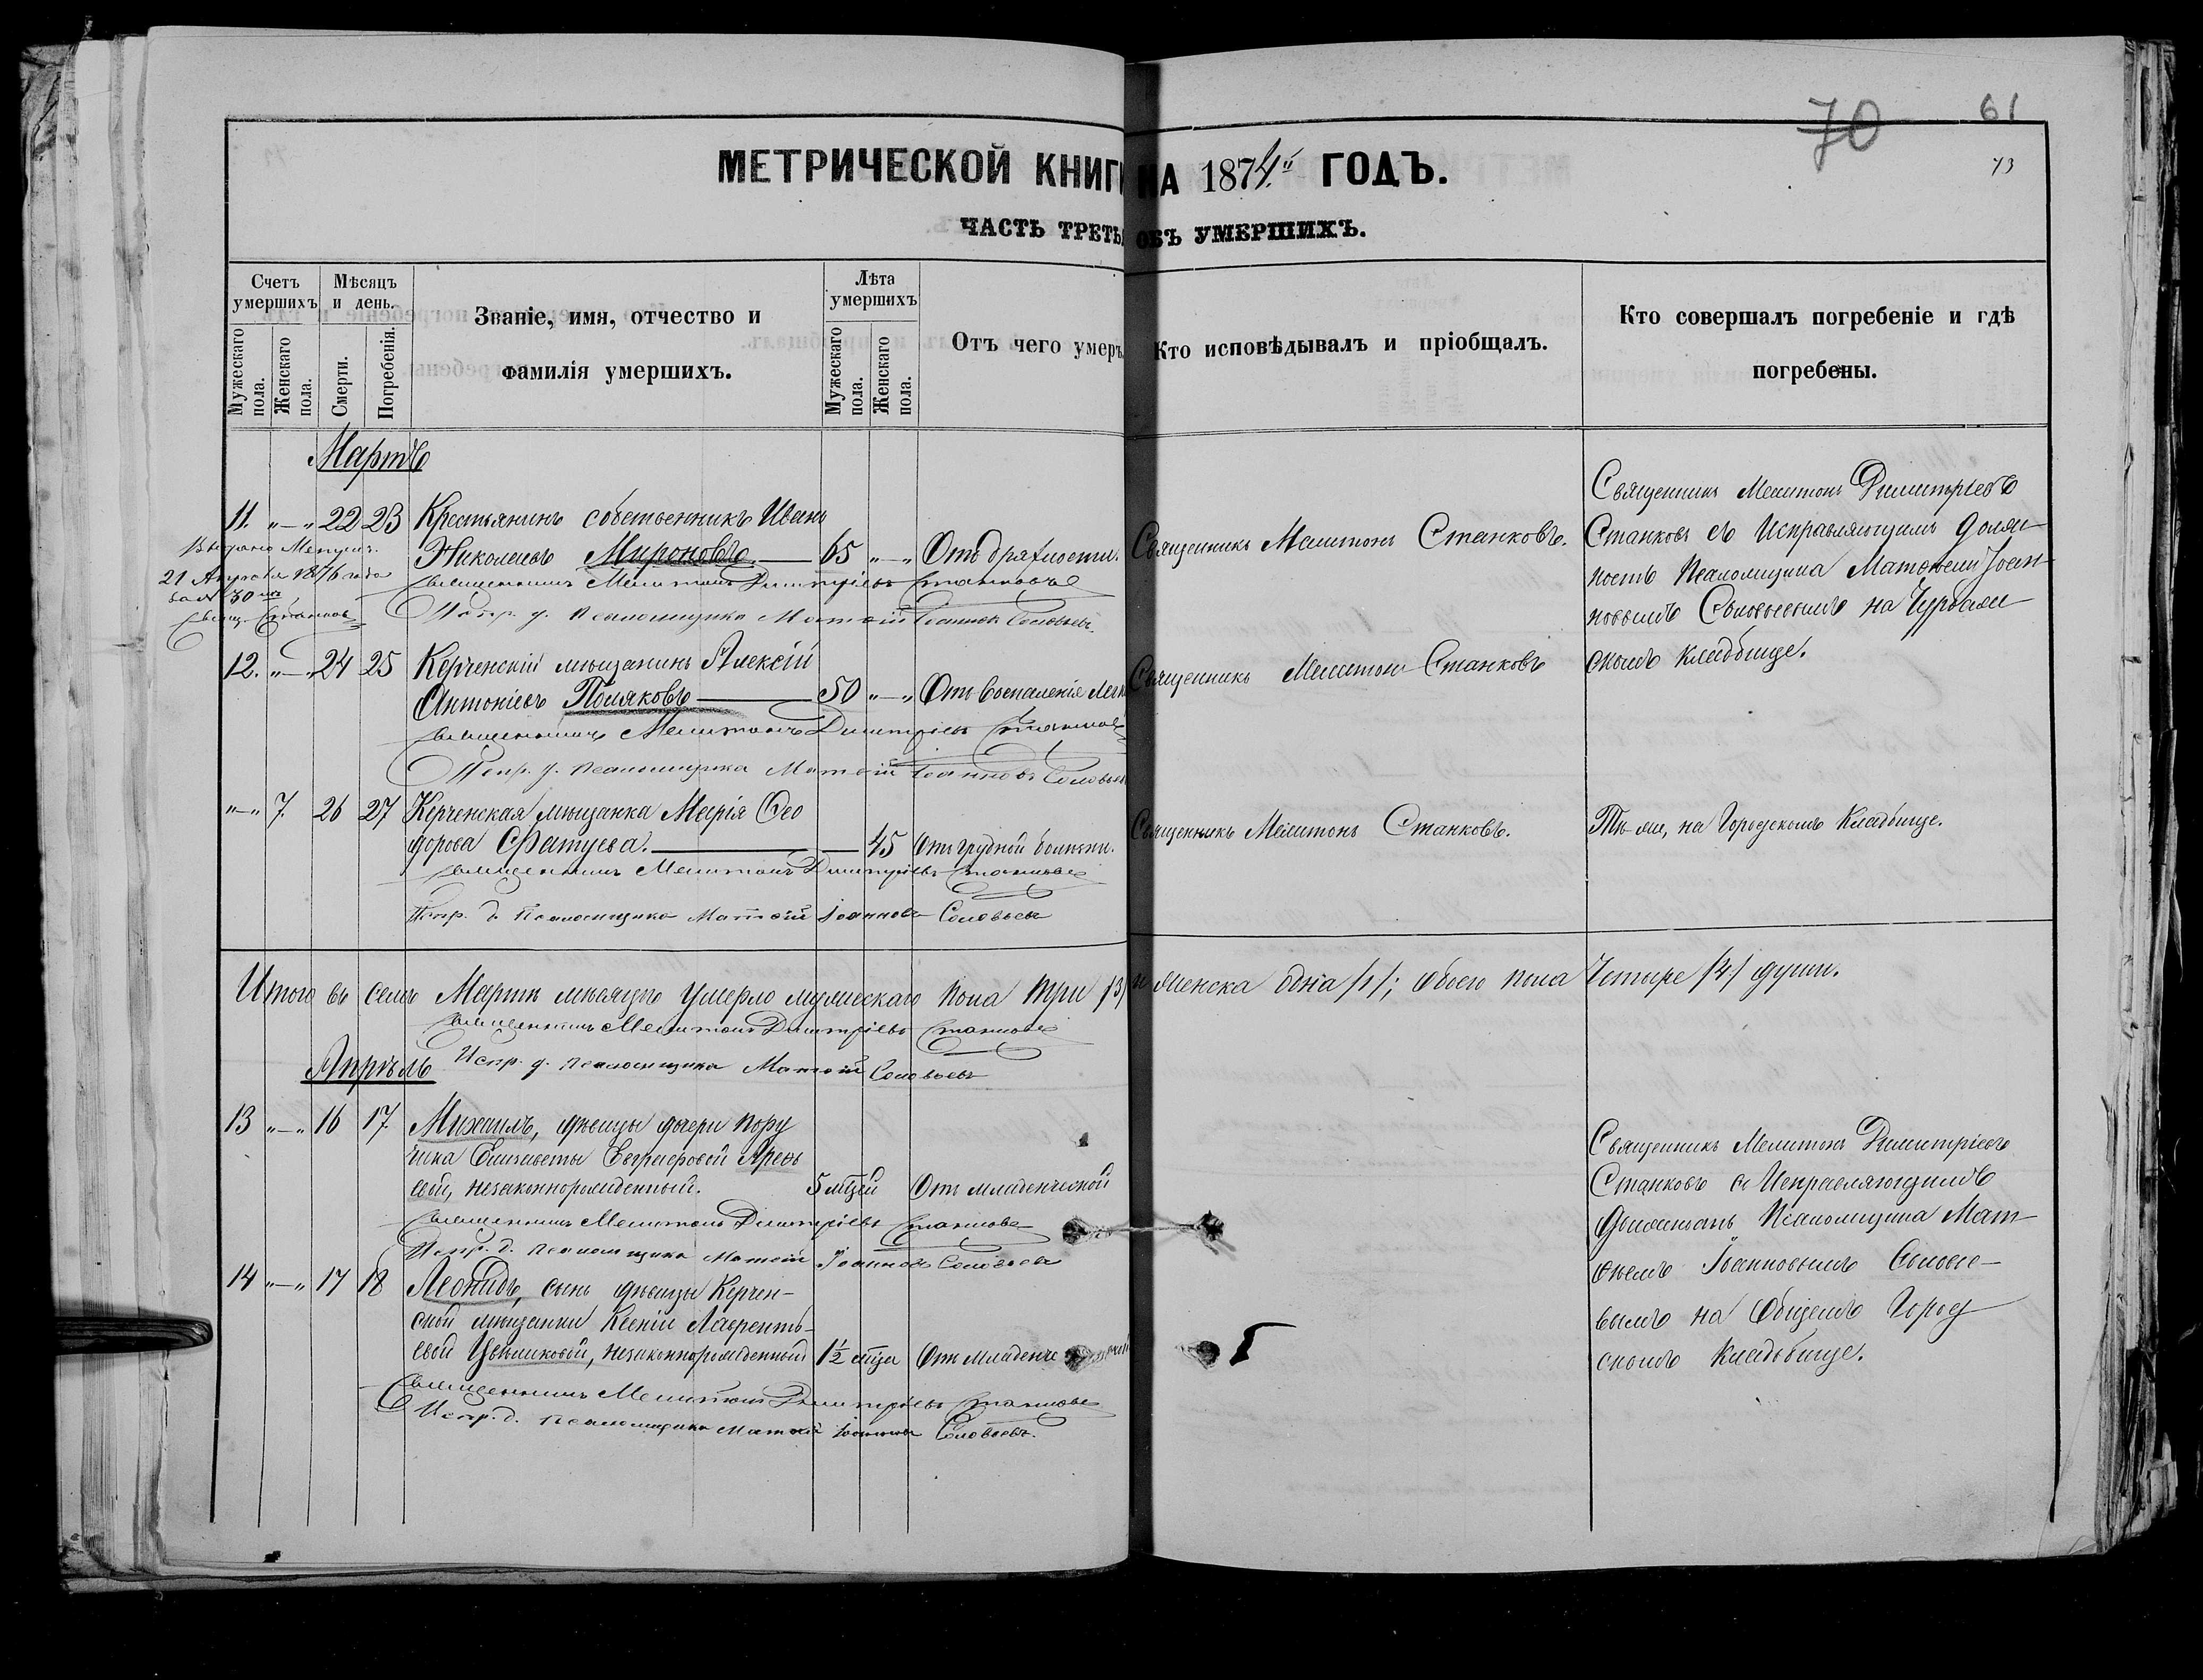 70
61
73
МЕТРИЧЕСКОЙ КНИГИ НА 1874й ГОДЪ.
ЧАСТЬ ТРЕТЬЯ ОБЪ УМЕРШИХЪ.
Счетъ умершихъ
Мужескаго пола.
Женскаго пола.
Мѣсяцъ и день.
Смерти.
Погребенія.
Званіе, имя, отчество и
фамилія умершихъ.
Лѣта умершихъ
Мужескаго пола.
Женскаго пола.
Отъ чего умеръ
Кто исповѣдывалъ и пріобщалъ.
Кто совершалъ погребеніе и гдѣ
погребены.
Мартъ
11. „—„ 22 23 Крестьянинъ собственникъ Иванъ
Николаевъ Мироновъ — 65 „—„ Отъ дряхлости. Священникъ Мелитонъ Станковъ.
Священникъ Мелитонъ Димитріевъ Станковъ
Испр. д. Псаломщика Матѳій Іоанновъ Соловьевъ.
21 Апрѣля 1876 года
Священникъ Мелитонъ Димитріевъ
Станковъ съ Исправляющимъ долж-
ность Псаломщика Матѳеемъ Іоан-
новымъ Соловьевымъ на
скомъ кладбище.
12. „—„ 24 25 Керченскій мѣщанинъ Алексій
Антоніевъ Поляковъ — 50 „—„ Отъ воспаленія легк Священникъ Мелитонъ Станковъ
Священникъ Мелитонъ Димитріевъ Станковъ
Испр. д. Псаломщика Матѳій Іоанновъ Соловьевъ
„—„ 7. 26 27 Керченская мѣщанка Марія Ѳео
дорова — — 45 Отъ грудной болѣзни. Священникъ Мелитонъ Станковъ. Тѣ-же, на Городскомъ Кладбище.
Священникъ Мелитонъ Димитріевъ Станковъ
Испр. д. Псаломщика Матѳій Іоанновъ Соловьевъ
Итого въ семъ Мартѣ мѣсяцѣ умерло мужескаго пола три /3/ и женска одна /1/; обоего пола четыре /4/ души.
Священникъ Мелитонъ Димитріевъ Станковъ
Испр. д. Псаломщика Матѳій Соловьевъ
Апрѣль
13 „—„ 16 17. Михаилъ, дѣвицы дочери пору
чика Елисаветы Евграфовой
евой, незаконнорожденный. 5 мцей Отъ младенческой
Священникъ Мелитонъ Димитріевъ Станковъ
Испр. д. Псаломщика Матѳій Іоанновъ Соловьевъ
Священникъ Мелитонъ Димитріевъ
Станковъ съ Исправляющимъ
Псаломщика Мат-
ѳеемъ Іоанновымъ Соловье-
вымъ на Общемъ Город
скомъ кладбище.
14 „—„ 17 18 Леонидъ, сынъ дѣвицы Керчен-
ской мѣщанки Ксеніи Лаврентъ-
евой незаконнорожденный 1½ мца Отъ Младенческой
Священникъ Мелитонъ Димитріевъ Станковъ
Испр. д. Псаломщика Матѳій Іоанновъ Соловьевъ.